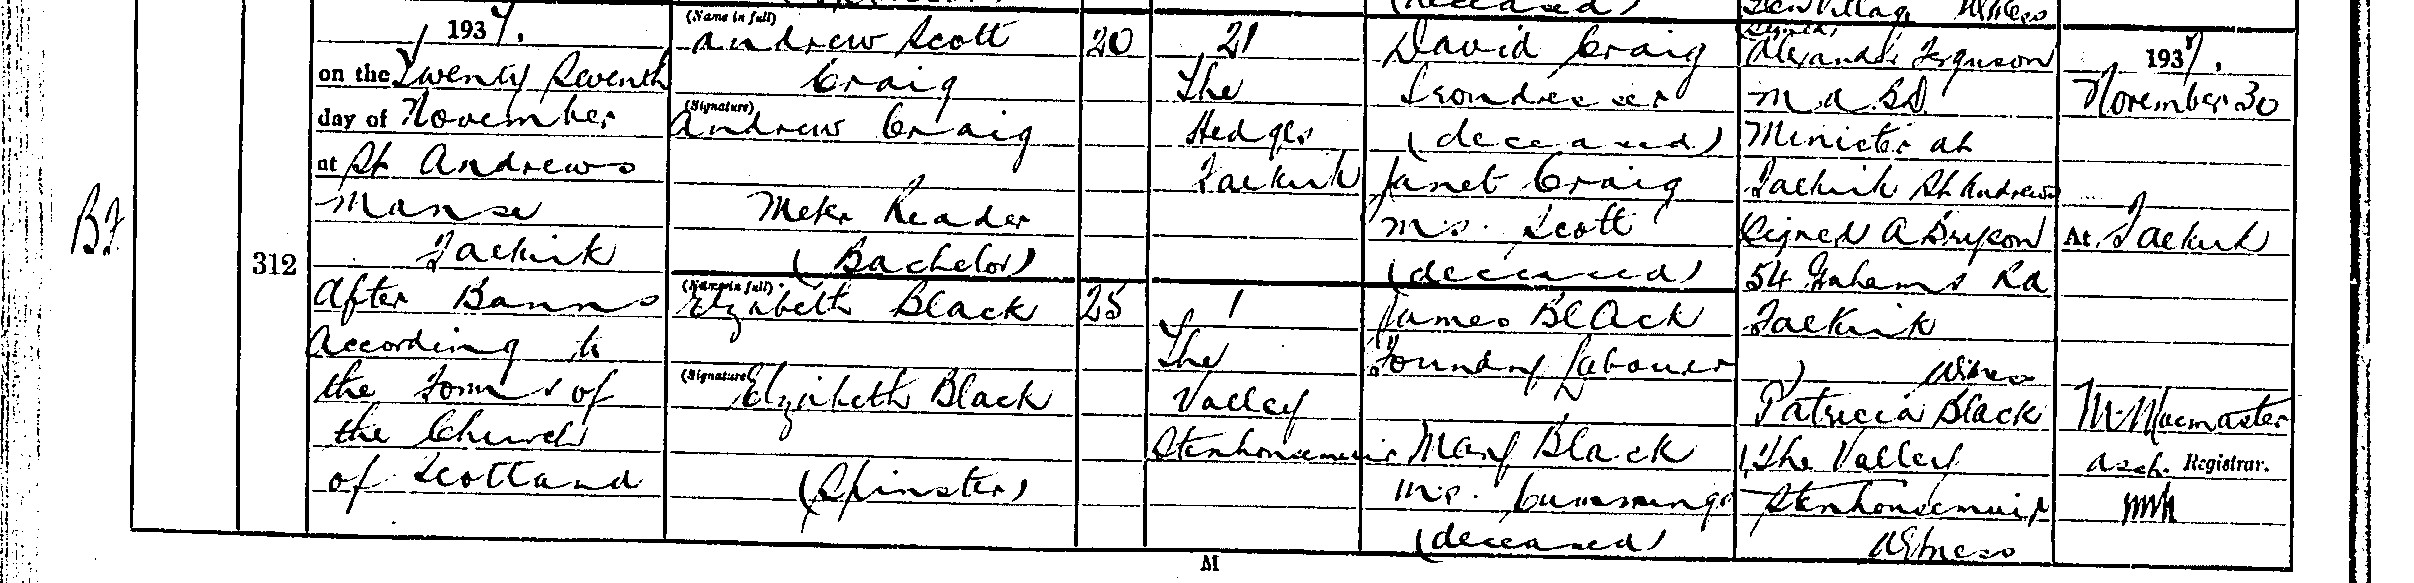 1937.
on the Twenty Seventh
day of November
at St Andrews
Manse
Falkirk
After Banns
According to
the Forms of
the Church
of Scotland
B7
312
(Name in full)
Andrew Scott
Craig
(Signature)
Andrew Craig
Meter Reader
(Bachelor)
(Name in full)
Elizabeth Black
(Signature)
Elizabeth Black
(Spinster)
20
25
21
The
Hedges
Falkirk
1
The
Valley
Stenhousemuir
(deceased)
David Craig
Irondresser
(deceased)
Janet Craig
m.s. Scott
(deceased)
James Black
Foundry Labourer
Mary Black
m.s. Cummings
(deceased)
Village Witness
Signed
Alexander Ferguson
M.A. B.D.
Minister at
Falkirk St Andrews
Signed A Bryson
54 Grahams Rd
Falkirk
Witness
Patricia Black
1 The Valley
Stenhousemuir
Witness
1937.
November 30
At Falkirk
M. Macmaster
Asst. Registrar.
M